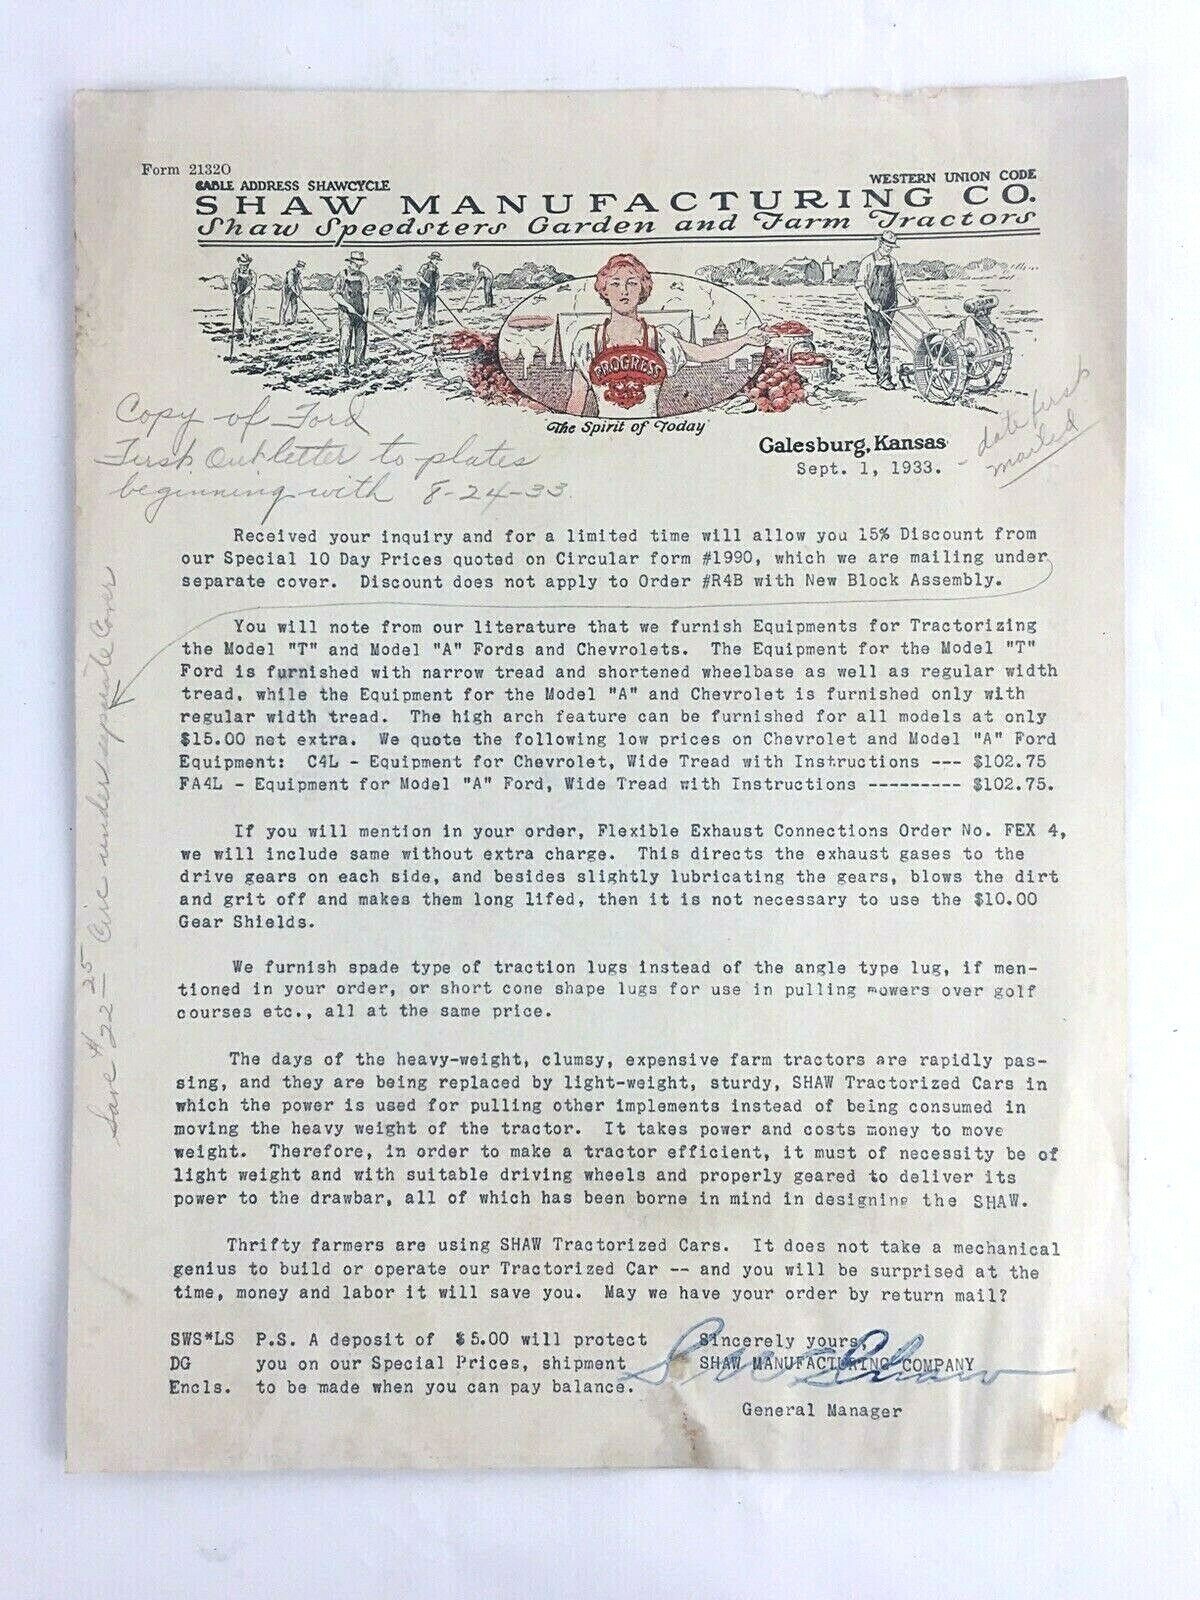 Form 21320
CABLE ADDRESS SHAWCYCLE
WESTERN UNION CODE
SHAW MANUFACTURING CO.
Shaw Speedsters Garden and Farm Tractors
PROGRESS
The Spirit of Today
Galesburg, Kansas
Sept. 1, 1933.
- date first
mailed
Copy of Ford
First Out letter to plates
beginning with 8-24-33.
Received your inquiry and for a limited time will allow you 15% Discount from
our Special 10 Day Prices quoted on Circular form #1990, which we are mailing under
separate cover. Discount does not apply to Order #R4B with New Block Assembly.
You will note from our literature that we furnish Equipments for Tractorizing
the Model "T" and Model "A" Fords and Chevrolets. The Equipment for the Model "T"
Ford is furnished with narrow tread and shortened wheelbase as well as regular width
tread, while the Equipment for the Model "A" and Chevrolet is furnished only with
regular width tread. The high arch feature can be furnished for all models at only
$15.00 net extra. We quote the following low prices on Chevrolet and Model "A" Ford
Equipment: C4L - Equipment for Chevrolet, Wide Tread with Instructions --- $102.75
FA4L - Equipment for Model "A" Ford, Wide Tread with Instructions --------- $102.75.
If you will mention in your order, Flexible Exhaust Connections Order No. FEX 4,
we will include same without extra charge. This directs the exhaust gases to the
drive gears on each side, and besides slightly lubricating the gears, blows the dirt
and grit off and makes them long lifed, then it is not necessary to use the $10.00
Gear Shields.
We furnish spade type of traction lugs instead of the angle type lug, if men-
tioned in your order, or short cone shape lugs for use in pulling mowers over golf
courses etc., all at the same price.
The days of the heavy-weight, clumsy, expensive farm tractors are rapidly pas-
sing, and they are being replaced by light-weight, sturdy, SHAW Tractorized Cars in
which the power is used for pulling other implements instead of being consumed in
moving the heavy weight of the tractor. It takes power and costs money to move
weight. Therefore, in order to make a tractor efficient, it must of necessity be of
light weight and with suitable driving wheels and properly geared to deliver its
power to the drawbar, all of which has been borne in mind in designing the SHAW.
Thrifty farmers are using SHAW Tractorized Cars. It does not take a mechanical
genius to build or operate our Tractorized Car -- and you will be surprised at the
time, money and labor it will save you. May we have your order by return mail?
SWS*LS P.S. A deposit of $5.00 will protect
DG you on our Special Prices, shipment
Encls. to be made when you can pay balance.
Sincerely yours,
SHAW MANUFACTURING COMPANY
S W Shaw
General Manager
Save #22 25 Circ under separate cover